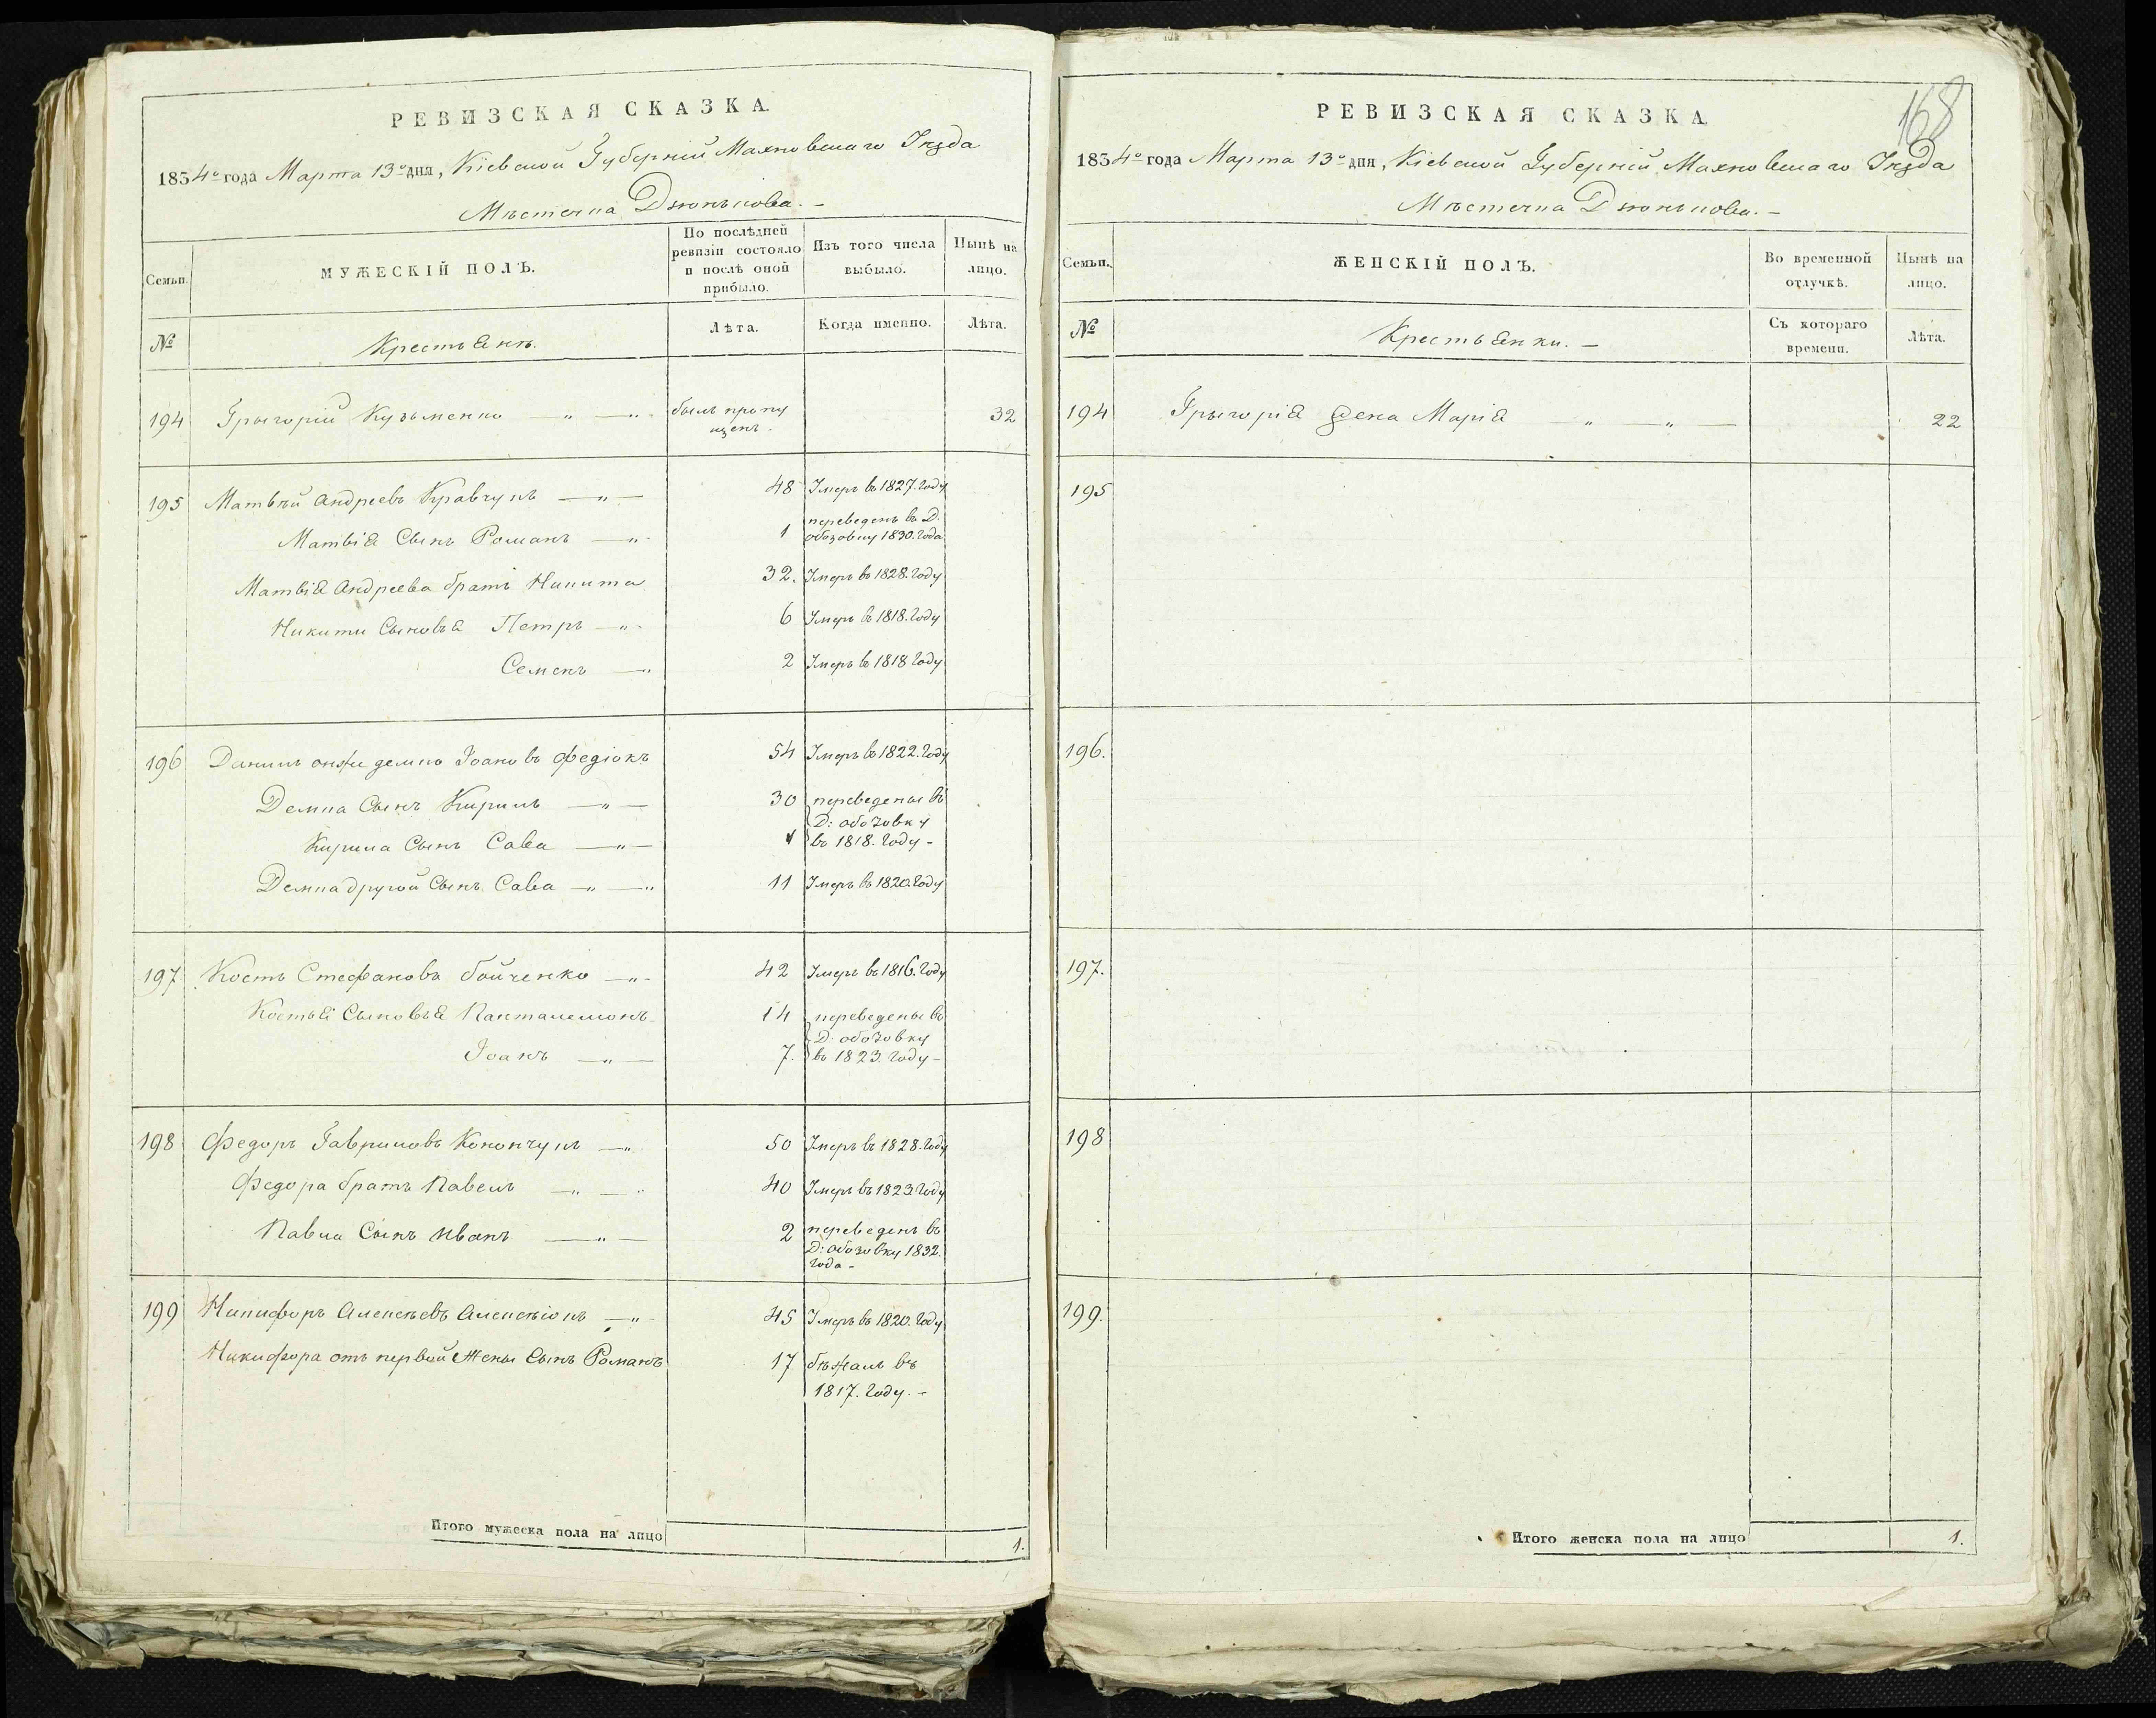 РЕВИЗСКАЯ СКАЗКА.
1834го года Марта 13го дня, Кіевской Губерніи Махновскаго Уѣзда
Мѣстечка Дзюнькова. –
Семьи.
МУЖЕСКІЙ ПОЛЪ.
По послѣдней ревизіи состояло и послѣ оной прибыло.
Изъ того числа выбыло.
Нынѣ на лицо.
№
Крестьяне.
Лѣта.
Когда именно.
Лѣта.
194 Грыгорій Кузьменко — „ — „ - былъ пропу 32
щенъ.
195 Матвѣй Андреевъ Кравчукъ — „ — 48 Умеръ въ 1827. году
переведенъ въ Д.
Матвія Сынъ Романъ — „ - 1 обозовку 1830. года
Матвія Андреева братъ Никита 32. Умеръ въ 1828. году
Никиты Сыновья Петръ — „ - 6 Умеръ въ 1818. году
Семенъ — „ 2 Умеръ въ 1818 году
196 Данилъ онже демко Іоановъ Федіокъ 54 Умеръ въ 1822. году
Демка Сынъ Кирилъ — „ — 30 переведены въ
Д: обозовку
Кирила Сынъ Сава — „ — 1 въ 1818. году -
Демка другой Сынъ Сава — „ — „ 11 Умеръ въ 1820. году
197 Кость Стефановъ бойченко — „ - 42 Умеръ въ 1816. году
Костья Сыновья Панталемонъ - 14 переведены въ
Д: обозовку
Іоанъ — „ — 7. въ 1823. году -
198 Федоръ Гавриловъ Конончукъ — „ 50 Умеръ въ 1828. году
Федора братъ Павелъ — „ — „ 40 Умеръ въ 1823 году
Павла Сынъ Иванъ — „ — 2 переведенъ въ
Д: обозовку 1832.
года -
199 Никифоръ Алексѣевъ Алексѣіокъ — „ - 45 Умеръ въ 1820. году
Никифора отъ первой Жены Сынъ Романъ 17 бѣжалъ въ
1817. году. -
Итого мужеска пола на лицо 1.
168
РЕВИЗСКАЯ СКАЗКА.
1834го года Марта 13го дня, Кіевской Губерніи Махновскаго Уѣзда
Мѣстечка Дзюнькова. –
Семьи.
ЖЕНСКІЙ ПОЛЪ.
Во временной отлучкѣ.
Нынѣ на лицо.
№
Крестьянки. –
Съ котораго времени.
Лѣта.
194 Грыгорія Жена Марія — „ — „ — 22
195
196.
197.
198
199.
Итого женска пола на лицо 1.